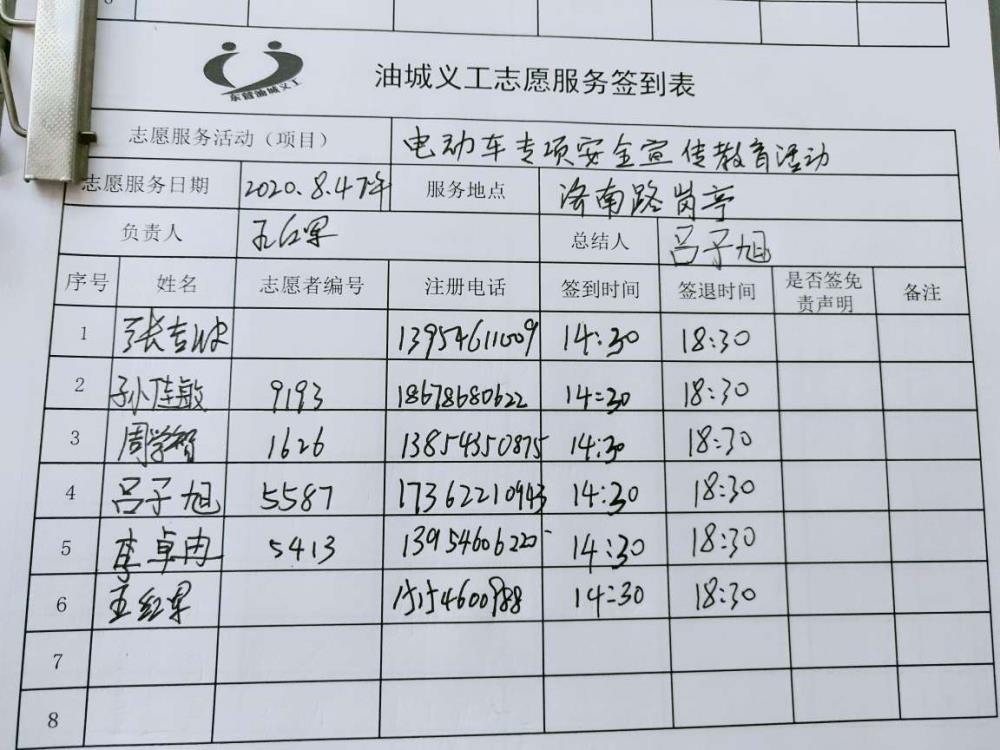 东营油城义工
油城义工志愿服务签到表
志愿服务活动（项目） 电动车专项安全宣传教育活动
志愿服务日期 2020.8.4下午 服务地点 济南路岗亭
负责人 王红军 总结人 吕子旭
序号 姓名 志愿者编号 注册电话 签到时间 签退时间 是否签免责声明 备注
1 张吉波 13954611009 14:30 18:30
2 孙佳敏 9193 18678680622 14:30 18:30
3 周学智 1626 13854350875 14:30 18:30
4 吕子旭 5587 17362210943 14:30 18:30
5 李卓冉 5413 13954606220 14:30 18:30
6 王红军 15154600988 14:30 18:30
7
8